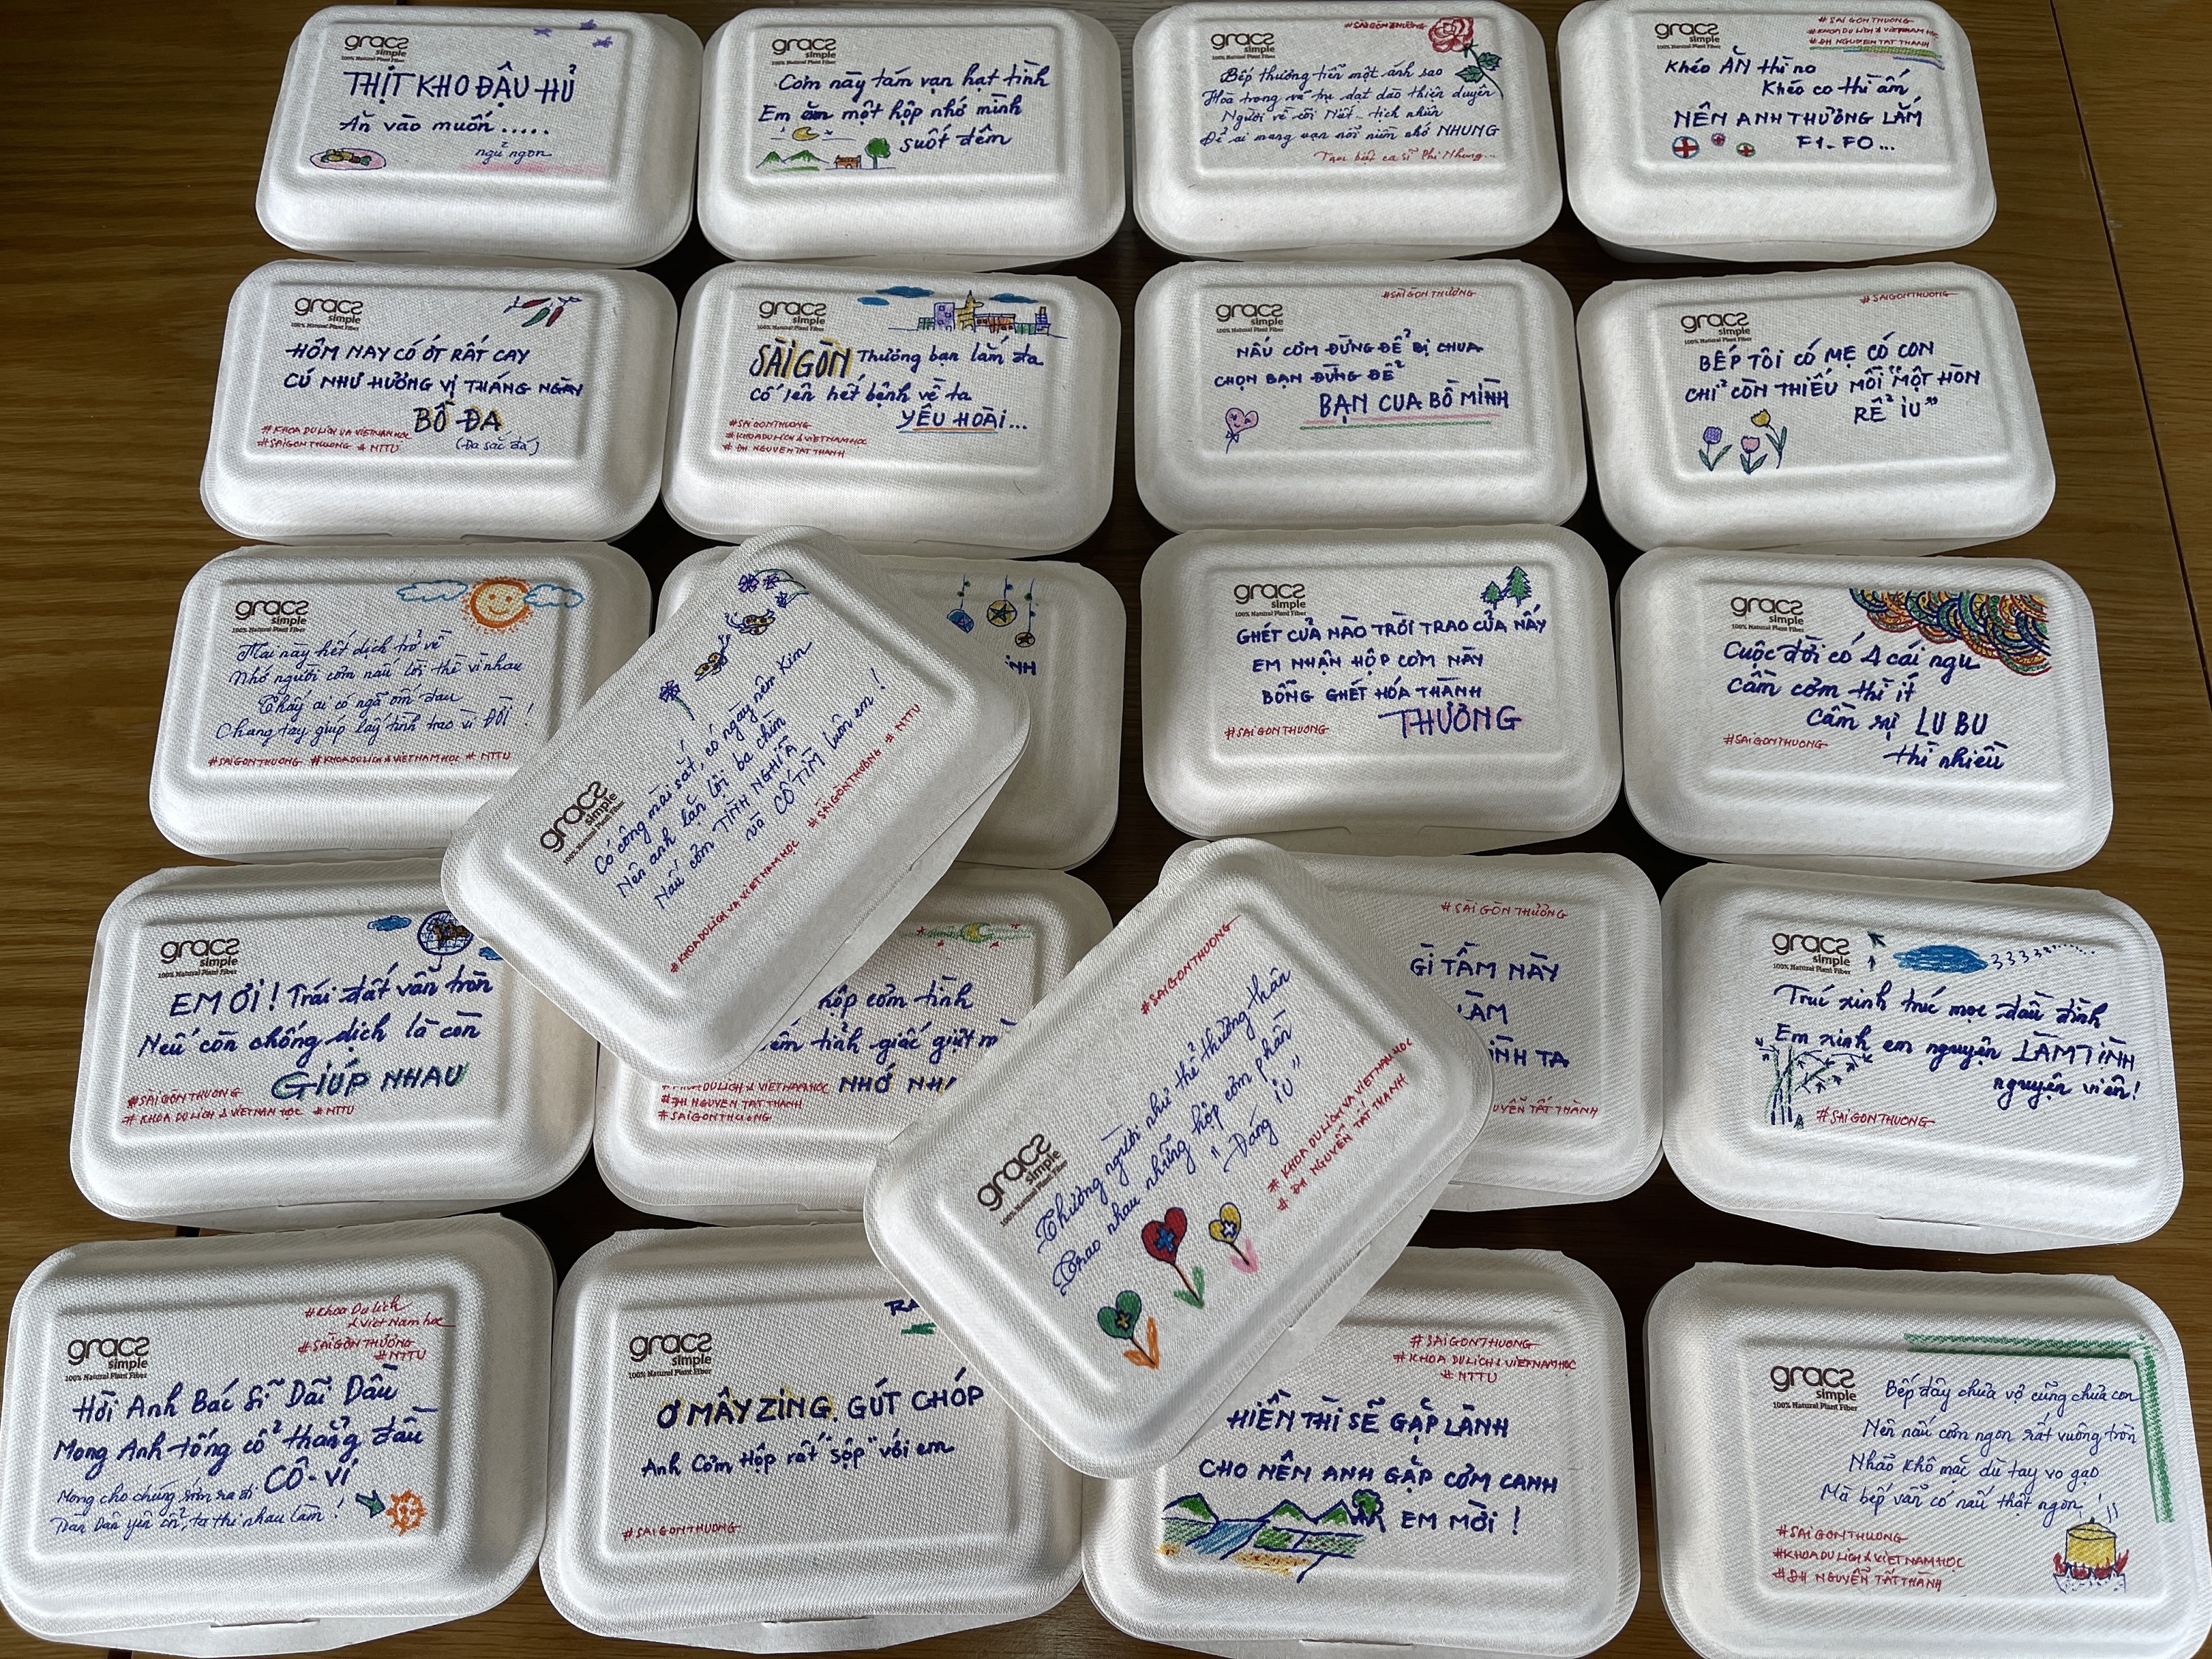 gracz
simple
100% Natural Plant Fiber
THỊT KHO ĐẬU HỦ
Ăn vào muốn .....
ngủ ngon
gracz
simple
100% Natural Plant Fiber
Cơm này tám vạn hạt tình
Em ăn một hộp nhớ mình
suốt đêm
gracz
simple
100% Natural Plant Fiber
#SAIGONTHƯƠNG
Bếp thương tiễn một ánh sao
Hòa trong vũ trụ dạt dào thiện duyên
Người về cõi Niết.. tịch nhiên
Để ai mang vạn nỗi niềm nhớ NHUNG
Tạm biệt ca sĩ Phi Nhung...
gracz
simple
100% Natural Plant Fiber
#SAIGONTHUONG
#KHOA DU LỊCH & VIETNAM HỌC
#ĐH NGUYEN TAT THANH
Khéo ĂN thì no
Khéo co thì ấm
NÊN ANH THƯƠNG LẮM
F1-F0...
gracz
simple
100% Natural Plant Fiber
HÔM NAY CÓ ỚT RẤT CAY
CÚ NHƯ HƯƠNG VỊ THÁNG NGÀY
BỒ ĐA
(Đa sắc đá)
#KHOA DU LỊCH VA VIETNAM HỌC
#SAIGONTHUONG #NTTU
gracz
simple
100% Natural Plant Fiber
SÀI GÒN Thương bạn lắm đa
Cố lên hết bệnh về ta
YÊU HOÀI...
#SAIGONTHUONG
#KHOADULICH&VIETNAMHỌC
#ĐH NGUYEN TAT THANH
gracz
simple
100% Natural Plant Fiber
#SAIGONTHƯƠNG
NẤU CƠM ĐỪNG ĐỂ BỊ CHUA
CHỌN BẠN ĐỪNG ĐỂ
BẠN CUA BỒ MÌNH
gracz
simple
100% Natural Plant Fiber
#SAIGONTHUONG
BẾP TÔI CÓ MẸ CÓ CON
CHỈ CÒN THIẾU MỖI "MỘT HÒN
RỂ IU"
gracz
simple
100% Natural Plant Fiber
Mai này hết dịch trở về
Nhớ người cơm nấu lời thề vì nhau
Thấy ai có ngã ốm đau
Chung tay giúp lấy tình trao vì ĐỜI !
#SAIGONTHUONG #KHOADULICH&VIETNAMHỌC #NTTU
gracz
simple
100% Natural Plant Fiber
Có công mài sắt, có ngày nên Kim
Nên anh lặn lội ba chìm
Nấu cơm TÌNH NGHĨA
và CÓ TIM luôn em !
#KHOADULICH VA VIETNAMHỌC #SAIGONTHƯƠNG #NTTU
gracz
simple
100% Natural Plant Fiber
GHÉT CỦA NÀO TRỜI TRAO CỦA NẤY
EM NHẬN HỘP CƠM NÀY
BỖNG GHÉT HÓA THÀNH
THƯƠNG
#SAIGONTHUONG
gracz
simple
100% Natural Plant Fiber
Cuộc đời có 4 cái ngu
Cầm cơm thì ít
Cầm sự LU BU
thì nhiều
#SAIGONTHUONG
gracz
simple
100% Natural Plant Fiber
EM ƠI! Trái đất vẫn tròn
Nếu còn chống dịch là còn
GIÚP NHAU
#SAIGONTHUONG
#KHOA DU LỊCH & VIETNAM HỌC #NTTU
hộp cơm tình
tỉnh giấc giựt
NHỚ
#ĐH NGUYEN TAT THANH
#SAIGONTHUONG
gracz
simple
100% Natural Plant Fiber
#SAIGONTHUONG
Thương người như thể thương thân
Trao nhau những hộp cơm phần
"Dáng IU"
#KHOADULICH VA VIETNAMHỌC
#ĐH NGUYỄN TẤT THANH
#SÀI GÒN THƯƠNG
GÌ TẦM NÀY
TA
gracz
simple
100% Natural Plant Fiber
Trúc xinh trúc mọc đầu đình
Em xinh em nguyện LÀM TÌNH
nguyện viên!
#SAIGONTHUONG
gracz
simple
100% Natural Plant Fiber
#Khoa Du lịch
& Việt Nam học
#SAIGONTHƯƠNG
#NTTU
Hỡi Anh Bác Sĩ Dãi Dầu
Mong Anh tống cổ thằng đầu
CÔ-VI
Mong cho chúng sớm ra đi
Dân Dần yên ổn, ta thi nhau làm !
gracz
simple
100% Natural Plant Fiber
Ơ MÂY ZING. GÚT CHÓP
Anh Cơm Hộp rất "sộp" với em
#SAIGONTHUONG
#SAIGONTHUONG
#KHOA DU LỊCH & VIETNAM HỌC
#NTTU
HIỀN THÌ SẼ GẶP LÀNH
CHO NÊN ANH GẶP CƠM CANH
EM MỜI !
gracz
simple
100% Natural Plant Fiber
Bếp đây chưa vợ cũng chưa con
Nên nấu cơm ngon rất vuông tròn
Nhão khô mặc dù tay vo gạo
Mà bếp vẫn có nấu thật ngon !
#SAIGONTHUONG
#KHOADULICH & VIETNAMHỌC
#ĐH NGUYỄN TẤT THÀNH